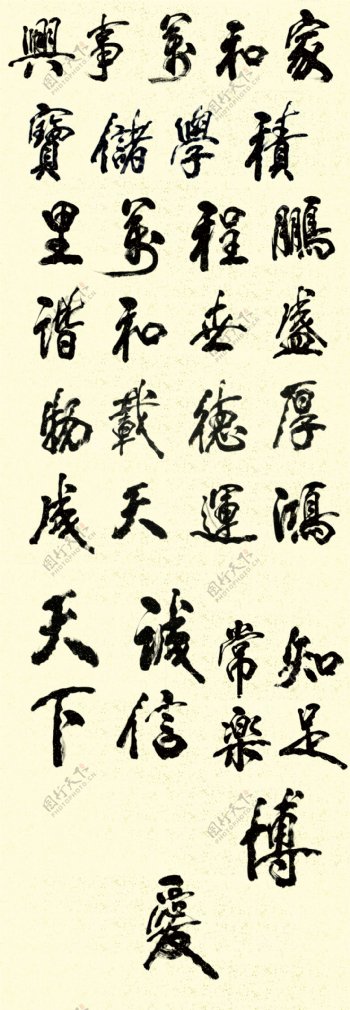 家和萬事興
積學儲寶
鵬程萬里
盛世和諧
厚德載物
鴻運天成
知足
常樂
誠信
天下
博愛
图行天下
PHOTOPHOTO.CN